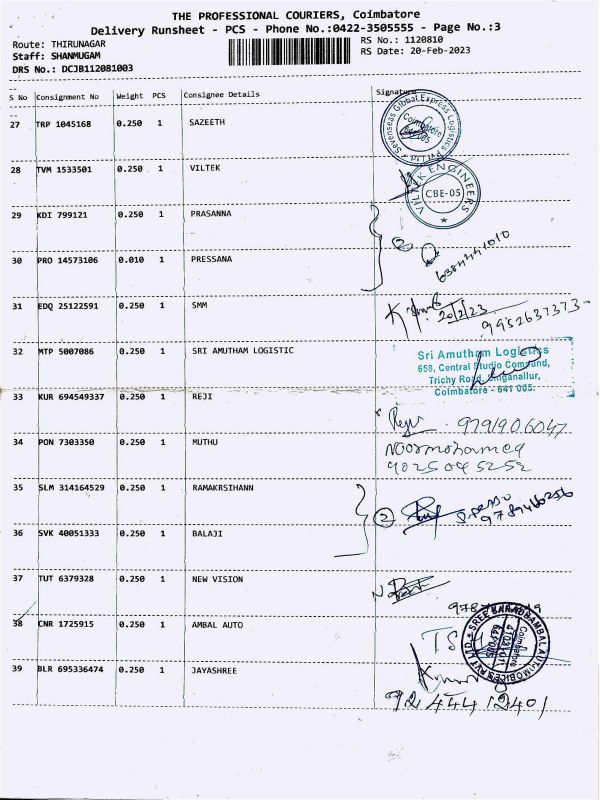 THE PROFESSIONAL COURIERS, Coimbatore
Delivery Runsheet - PCS - Phone No.:0422-3505555 - Page No.:3
Route: THIRUNAGAR
Staff: SHANMUGAM
DRS No.: DCJB112081003
RS No.: 1120810
RS Date: 20-Feb-2023
S No Consignment No Weight PCS Consignee Details Signature
27 TRP 1045168 0.250 1 SAZEETH
Sevenseas Global Express Logistics
Coimbatore
28 TVM 1533501 0.250 1 VILTEK
VILTEK ENGINEERS
CBE-05
29 KDI 799121 0.250 1 PRASANNA
2
30 PRO 14573106 0.010 1 PRESSANA
31 EDQ 25122591 0.250 1 SMM
20/2/23
9952637373
32 MTP 5007086 0.250 1 SRI AMUTHAM LOGISTIC
Sri Amutham Logistics
658, Central Studio Compound,
Trichy Road, Singanallur,
Coimbatore - 641 005.
33 KUR 694549337 0.250 1 REJI
9791906047
34 PON 7303350 0.250 1 MUTHU
Noormohamed
9025045252
35 SLM 314164529 0.250 1 RAMAKRSIHANN
2
36 SVK 40051333 0.250 1 BALAJI
37 TUT 6379328 0.250 1 NEW VISION
38 CNR 1725915 0.250 1 AMBAL AUTO
Coimbatore
39 BLR 695336474 0.250 1 JAYASHREE
9244412401